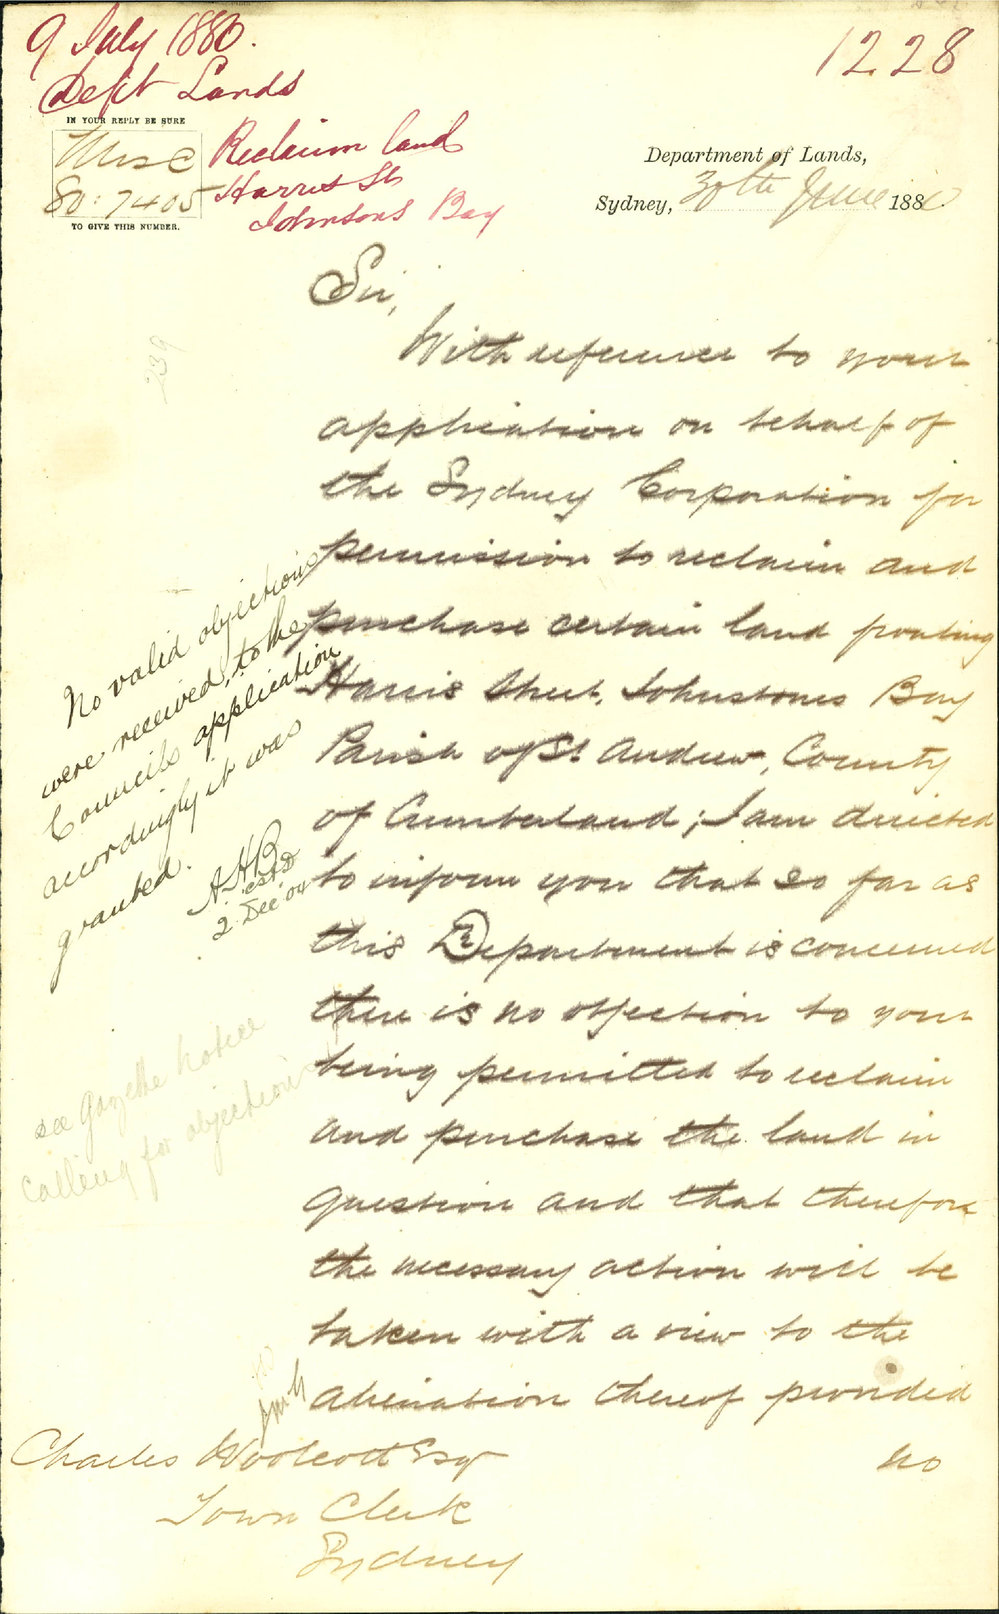 9 July 1880.
Dept Lands
1228
IN YOUR REPLY BE SURE
Misc
80: 7405
TO GIVE THIS NUMBER.
Reclaim land
Harris St
Johnsons Bay
Department of Lands,
Sydney, 30th June 1880.
Sir,
With reference to your
application on behalf of
the Sydney Corporation for
permission to reclaim and
purchase certain land fronting
Harris Street, Johnstones Bay
Parish of St Andrew, County
of Cumberland; I am directed
to inform you that so far as
this Department is concerned
there is no objection to your
being permitted to reclaim
and purchase the land in
question and that therefore
the necessary action will be
taken with a view to the
alienation thereof provided
no
239
No valid objections
were received, to the
Councils application
accordingly it was
granted.
A.H.B
2 Dec '04
see Gazette notice
calling for objections
Charles Woolcott Esqr
Town Clerk
Sydney